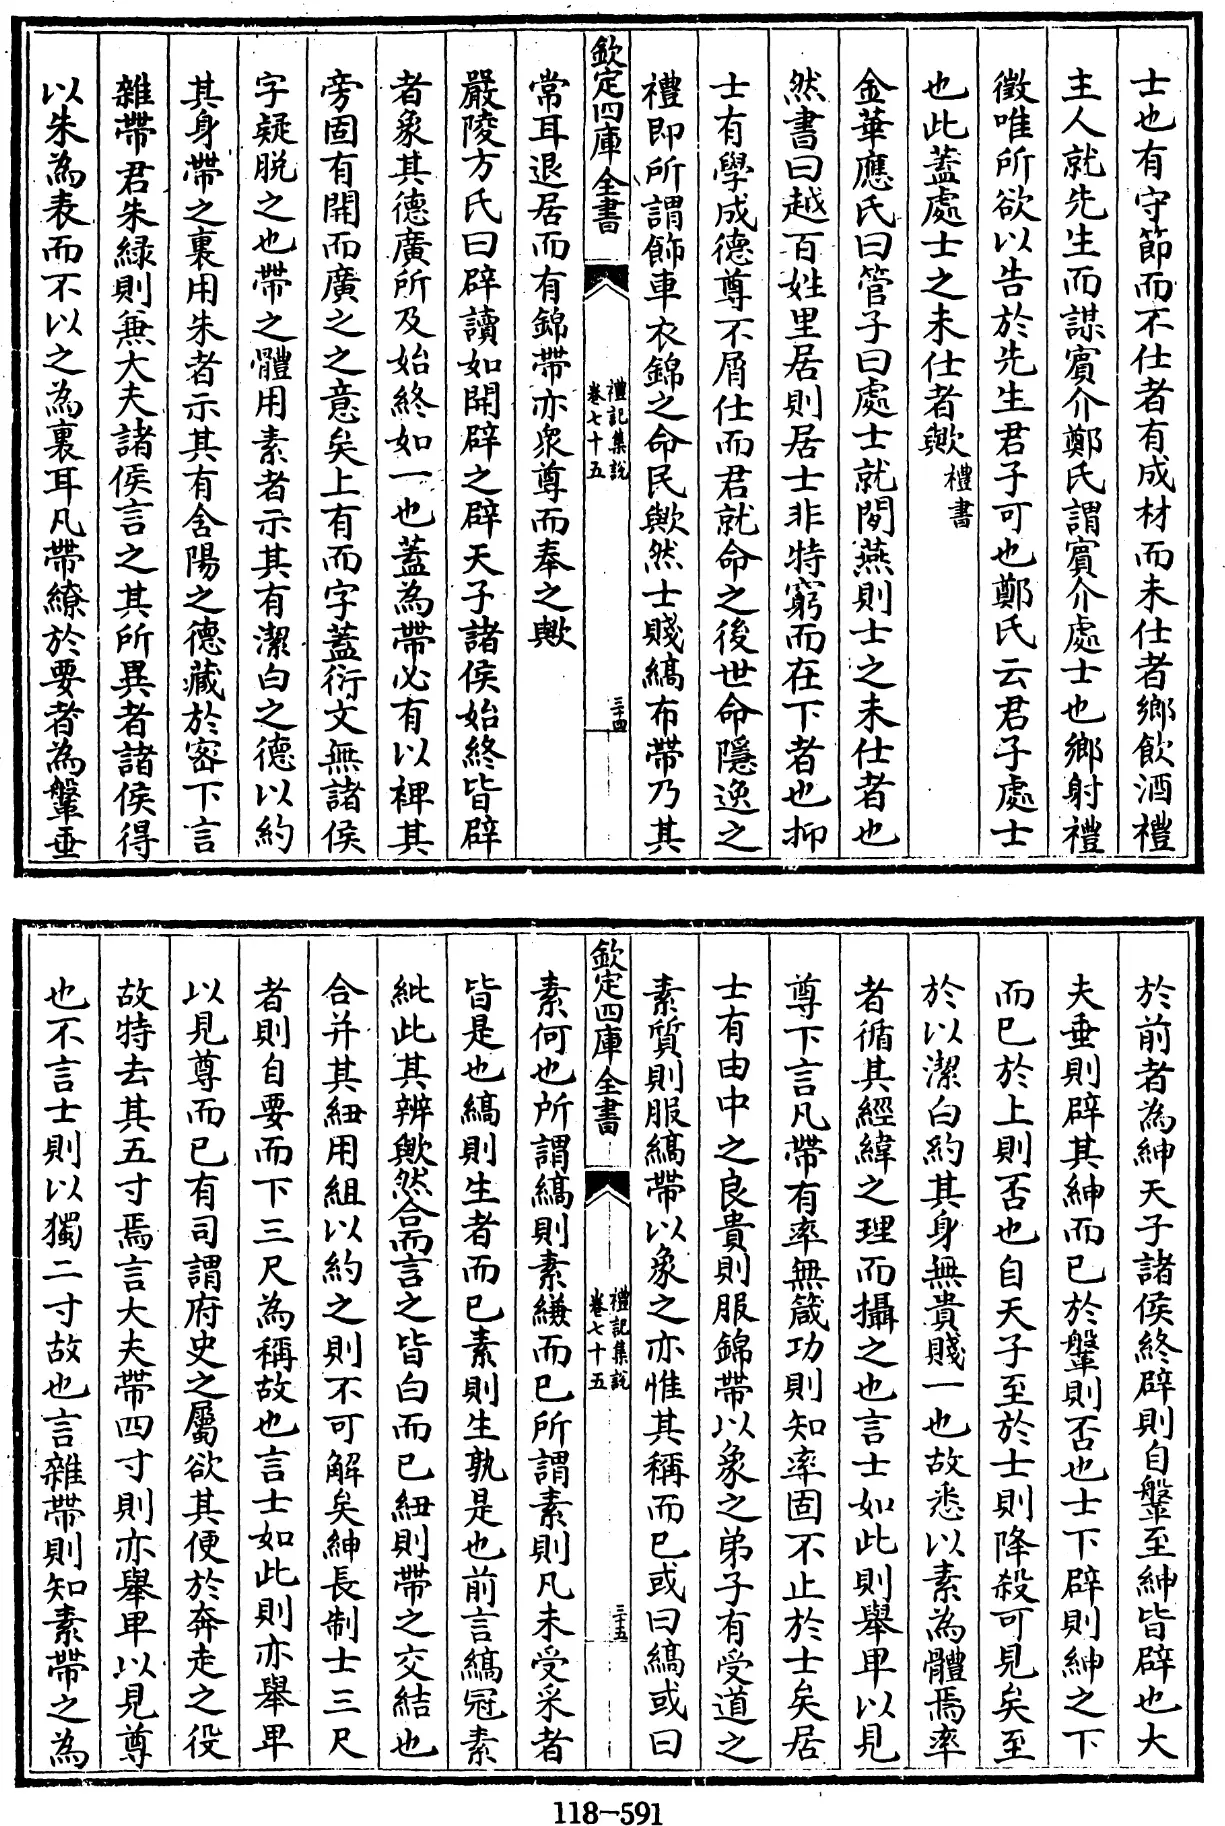 士也有守節而不仕者有成材而未仕者鄉飲酒禮
主人就先生而謀賓介鄭氏謂賓介處士也鄉射禮
徵唯所欲以告於先生君子可也鄭氏云君子處士
也此蓋處士之未仕者歟禮書
金華應氏曰管子曰處士就閒燕則士之未仕者也
然書曰越百姓里居則居士非特窮而在下者也抑
士有學成德尊不屑仕而君就命之後世命隱逸之
禮即所謂飾車衣錦之命民歟然士賤縞布帶乃其
欽定四庫全書
禮記集說
卷七十五
三十四
常耳退居而有錦帶亦衆尊而奉之歟
嚴陵方氏曰辟讀如開辟之辟天子諸侯始終皆辟
者象其德廣所及始終如一也蓋為帶必有以裨其
旁固有開而廣之之意矣上有而字蓋衍文無諸侯
字疑脱之也帶之體用素者示其有潔白之德以約
其身帶之裏用朱者示其有含陽之德藏於宻下言
雜帶君朱綠則兼大夫諸侯言之其所異者諸侯得
以朱為表而不以之為裏耳凡帶繚於要者為鞶垂
於前者為紳天子諸侯終辟則自鞶至紳皆辟也大
夫垂則辟其紳而已於鞶則否也士下辟則紳之下
而已於上則否也自天子至於士則降殺可見矣至
於以潔白約其身無貴賤一也故悉以素為體焉率
者循其經緯之理而攝之也言士如此則舉卑以見
尊下言凡帶有率無箴功則知率固不止於士矣居
士有由中之良貴則服錦帶以象之弟子有受道之
素質則服縞帶以象之亦惟其稱而已或曰縞或曰
欽定四庫全書
禮記集說
卷七十五
三十五
素何也所謂縞則素縑而已所謂素則凡未受采者
皆是也縞則生者而已素則生孰是也前言縞冠素
紕此其辨歟然合而言之皆白而已紐則帶之交結也
合并其紐用組以約之則不可解矣紳長制士三尺
者則自要而下三尺為稱故也言士如此則亦舉卑
以見尊而已有司謂府史之屬欲其便於奔走之役
故特去其五寸焉言大夫帶四寸則亦舉卑以見尊
也不言士則以獨二寸故也言雜帶則知素帶之為
118-591